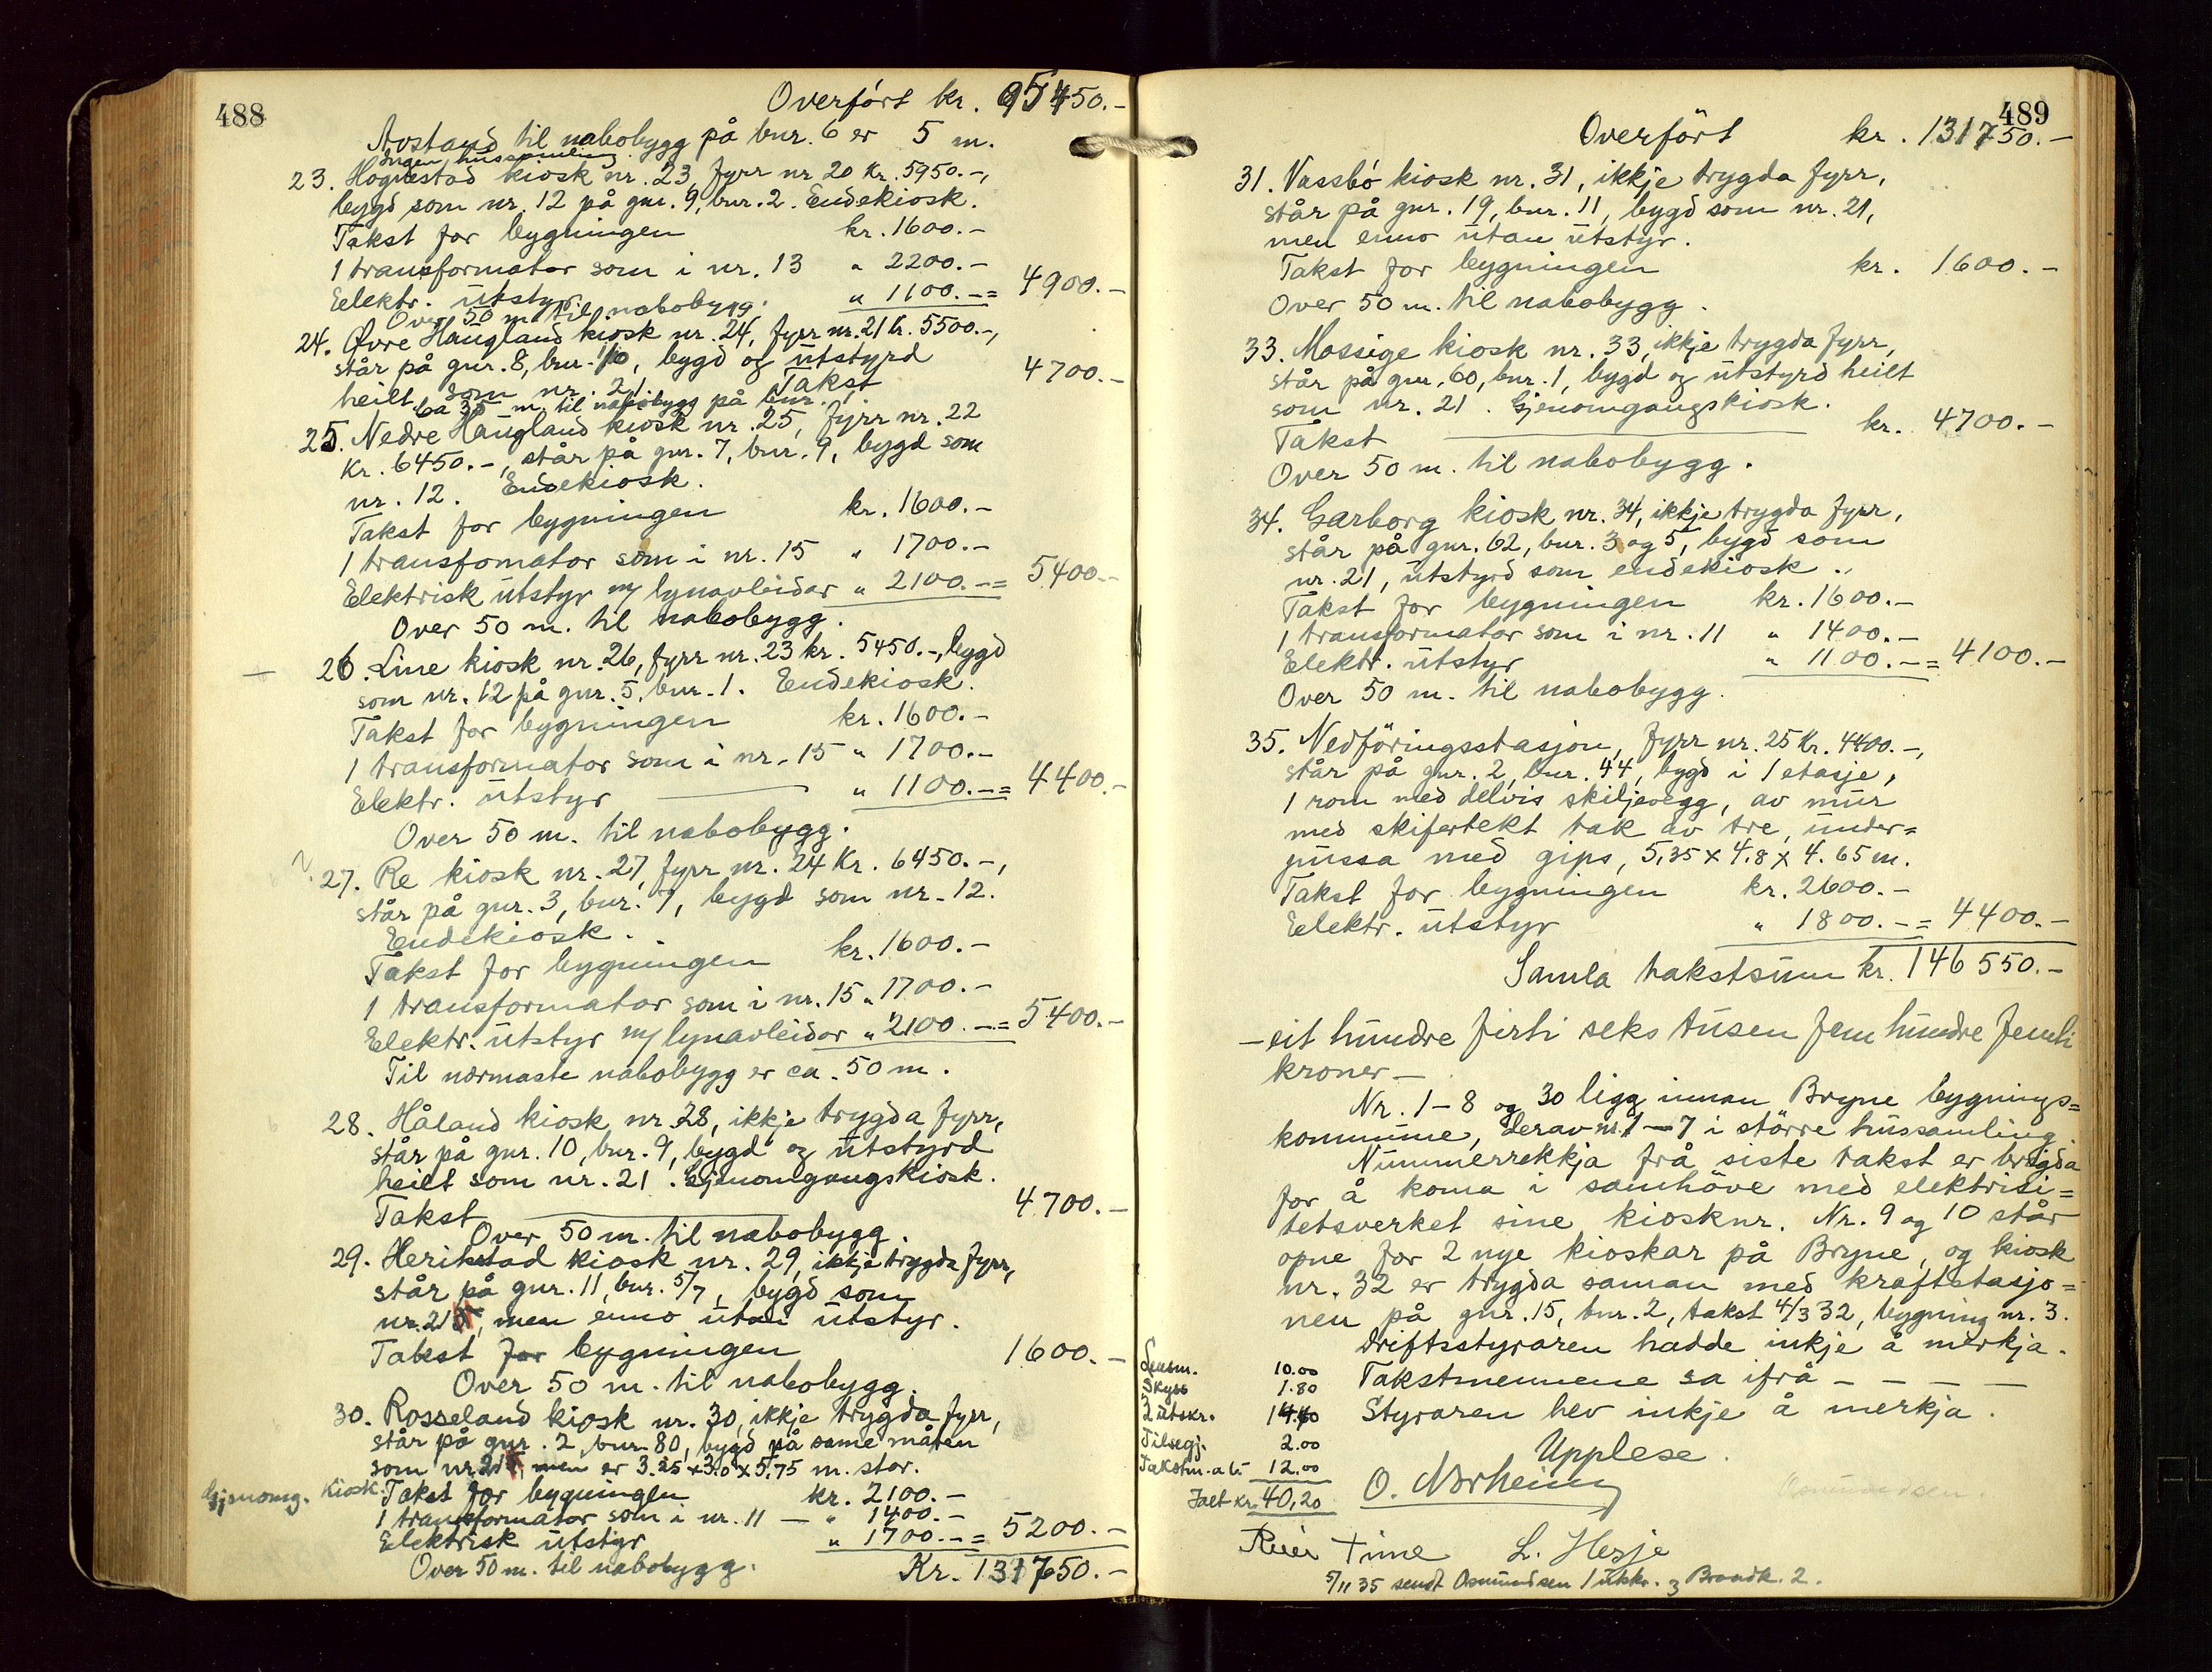 488
Overført kr. 95450.-
Avstand til nabobygg på bnr. 6 er 5 m.
Ingen hussamling.
23. Hognestad kiosk nr. 23, fyrr nr 20 Kr. 5950.-,
bygd som nr. 12 på gnr. 9, bnr. 2. Endekiosk.
Takst for bygningen kr. 1600.-
1 transformator som i nr. 13 " 2200.-
Elektr. utstyr " 1100.-= 4900.-
Over 50 m. til nabobygg.
24. Øvre Haugland kiosk nr. 24, fyrr nr. 21 kr. 5500.-,
står på gnr. 8, bnr. 10, bygd og utstyrd
heilt som nr. 21. Takst 4700.-
ca 35 m. til nabobygg på bnr. 1.
25. Nedre Haugland kiosk nr. 25, fyrr nr. 22
Kr. 6450.-, står på gnr. 7, bnr. 9, bygd som
nr. 12. Endekiosk.
Takst for bygningen kr. 1600.-
1 transfomator som i nr. 15 " 1700.-
Elektrisk utstyr m/ lynavleidar " 2100.-= 5400.-
Over 50 m. til nabobygg.
26. Line kiosk nr. 26, fyrr nr. 23 kr. 5450.-, bygd
som nr. 12 på gnr. 5, bnr. 1. Endekiosk.
Takst for bygningen kr. 1600.-
1 transformator som i nr. 15 " 1700.-
Elektr. utstyr " 1100.-= 4400.-
Over 50 m. til nabobygg.
27. Re kiosk nr. 27, fyrr nr. 24 Kr. 6450.-,
står på gnr. 3, bnr. 7, bygd som nr. 12.
Endekiosk.
Takst for bygningen kr. 1600.-
1 transformator som i nr. 15 " 1700.-
Elektr. utstyr m/ lynavleidor " 2100.-= 5400.-
Til nærmaste nabobygg er ca. 50 m.
28. Håland kiosk nr. 28, ikkje trygda fyrr,
står på gnr. 10, bnr. 9, bygd og utstyrd
heilt som nr. 21. Gjenomgangskiosk.
Takst 4700.-
Over 50 m. til nabobygg.
29. Herikstad kiosk nr. 29, ikkje trygda fyrr,
står på gnr. 11, bnr. 5/7, bygd som
nr. 21, men enno utan utstyr.
Takst for bygningen 1600.-
Over 50 m. til nabobygg.
30. Rosseland kiosk nr. 30, ikkje trygda fyrr,
står på gnr. 2, bnr. 80, bygd på same måten
som nr. 21, men er 3.25 x 3.0 x 5.75 m. stor.
Gjenomg. kiosk. Takst for bygningen kr. 2100.-
1 transformator som i nr. 11 — " 1400.-
Elektrisk utstyr " 1700.-= 5200.-
Over 50 m. til nabobygg. Kr. 131750.-
489
Overført kr. 131750.-
31. Vassbø kiosk nr. 31, ikkje trygda fyrr,
står på gnr. 19, bnr. 11, bygd som nr. 21,
men enno utan utstyr.
Takst for bygningen kr. 1600.-
Over 50 m. til nabobygg.
33. Mossige kiosk nr. 33, ikkje trygda fyrr,
står på gnr. 60, bnr. 1, bygd og utstyrd heilt
som nr. 21. Gjenomgangskiosk.
Takst kr. 4700.-
Over 50 m. til nabobygg.
34. Garborg kiosk nr. 34, ikkje trygda fyrr,
står på gnr. 62, bnr. 3 og 5, bygd som
nr. 21, utstyrd som endekiosk.
Takst for bygningen kr. 1600.-
1 transformator som i nr. 11 " 1400.-
Elektr. utstyr " 1100.-= 4100.-
Over 50 m. til nabobygg.
35. Nedføringsstasjon, fyrr nr. 25 Kr. 4400.-,
står på gnr. 2, bnr. 44, bygd i 1 etasje,
1 rom med delvis skiljevegg, av mur
med skifertekt tak av tre, under=
pussa med gips, 5,35 x 4.8 x 4.65 m.
Takst for bygningen kr. 2600.-
Elektr. utstyr " 1800.-= 4400.-
Samla takstsum kr. 146550.-
- eit hundre firti seks tusen fem hundre femti
kroner -
Nr. 1-8 og 30 ligg innan Bryne bygnings=
kommune, derav nr. 1-7 i större hussamling.
Nummerrekkja frå siste takst er brigda
for å koma i samhöve med elektrisi=
tetsverket sine kiosknr. Nr. 9 og 10 står
opne for 2 nye kioskar på Bryne, og kiosk
nr. 32 er trygda saman med kraftstasjo=
nen på gnr. 15, bnr. 2, takst 4/3 32, bygning nr. 3.
Driftsstyraren hadde inkje å merkja.
Takstmennene sa ifrå - - - -
Styraren hev inkje å merkja.
Upplese.
Lensm. 10.00
Skyss 1.80
2 utskr. 14.40
Tilsegj. 2.00
Takstm. a 6.- 12.00
Ialt kr. 40,20
O. Norheim
Osmundsen.
Reier Time L. Hesje
5/11 35 sendt Osmundsen 1 utskr. og Brandk. 2.